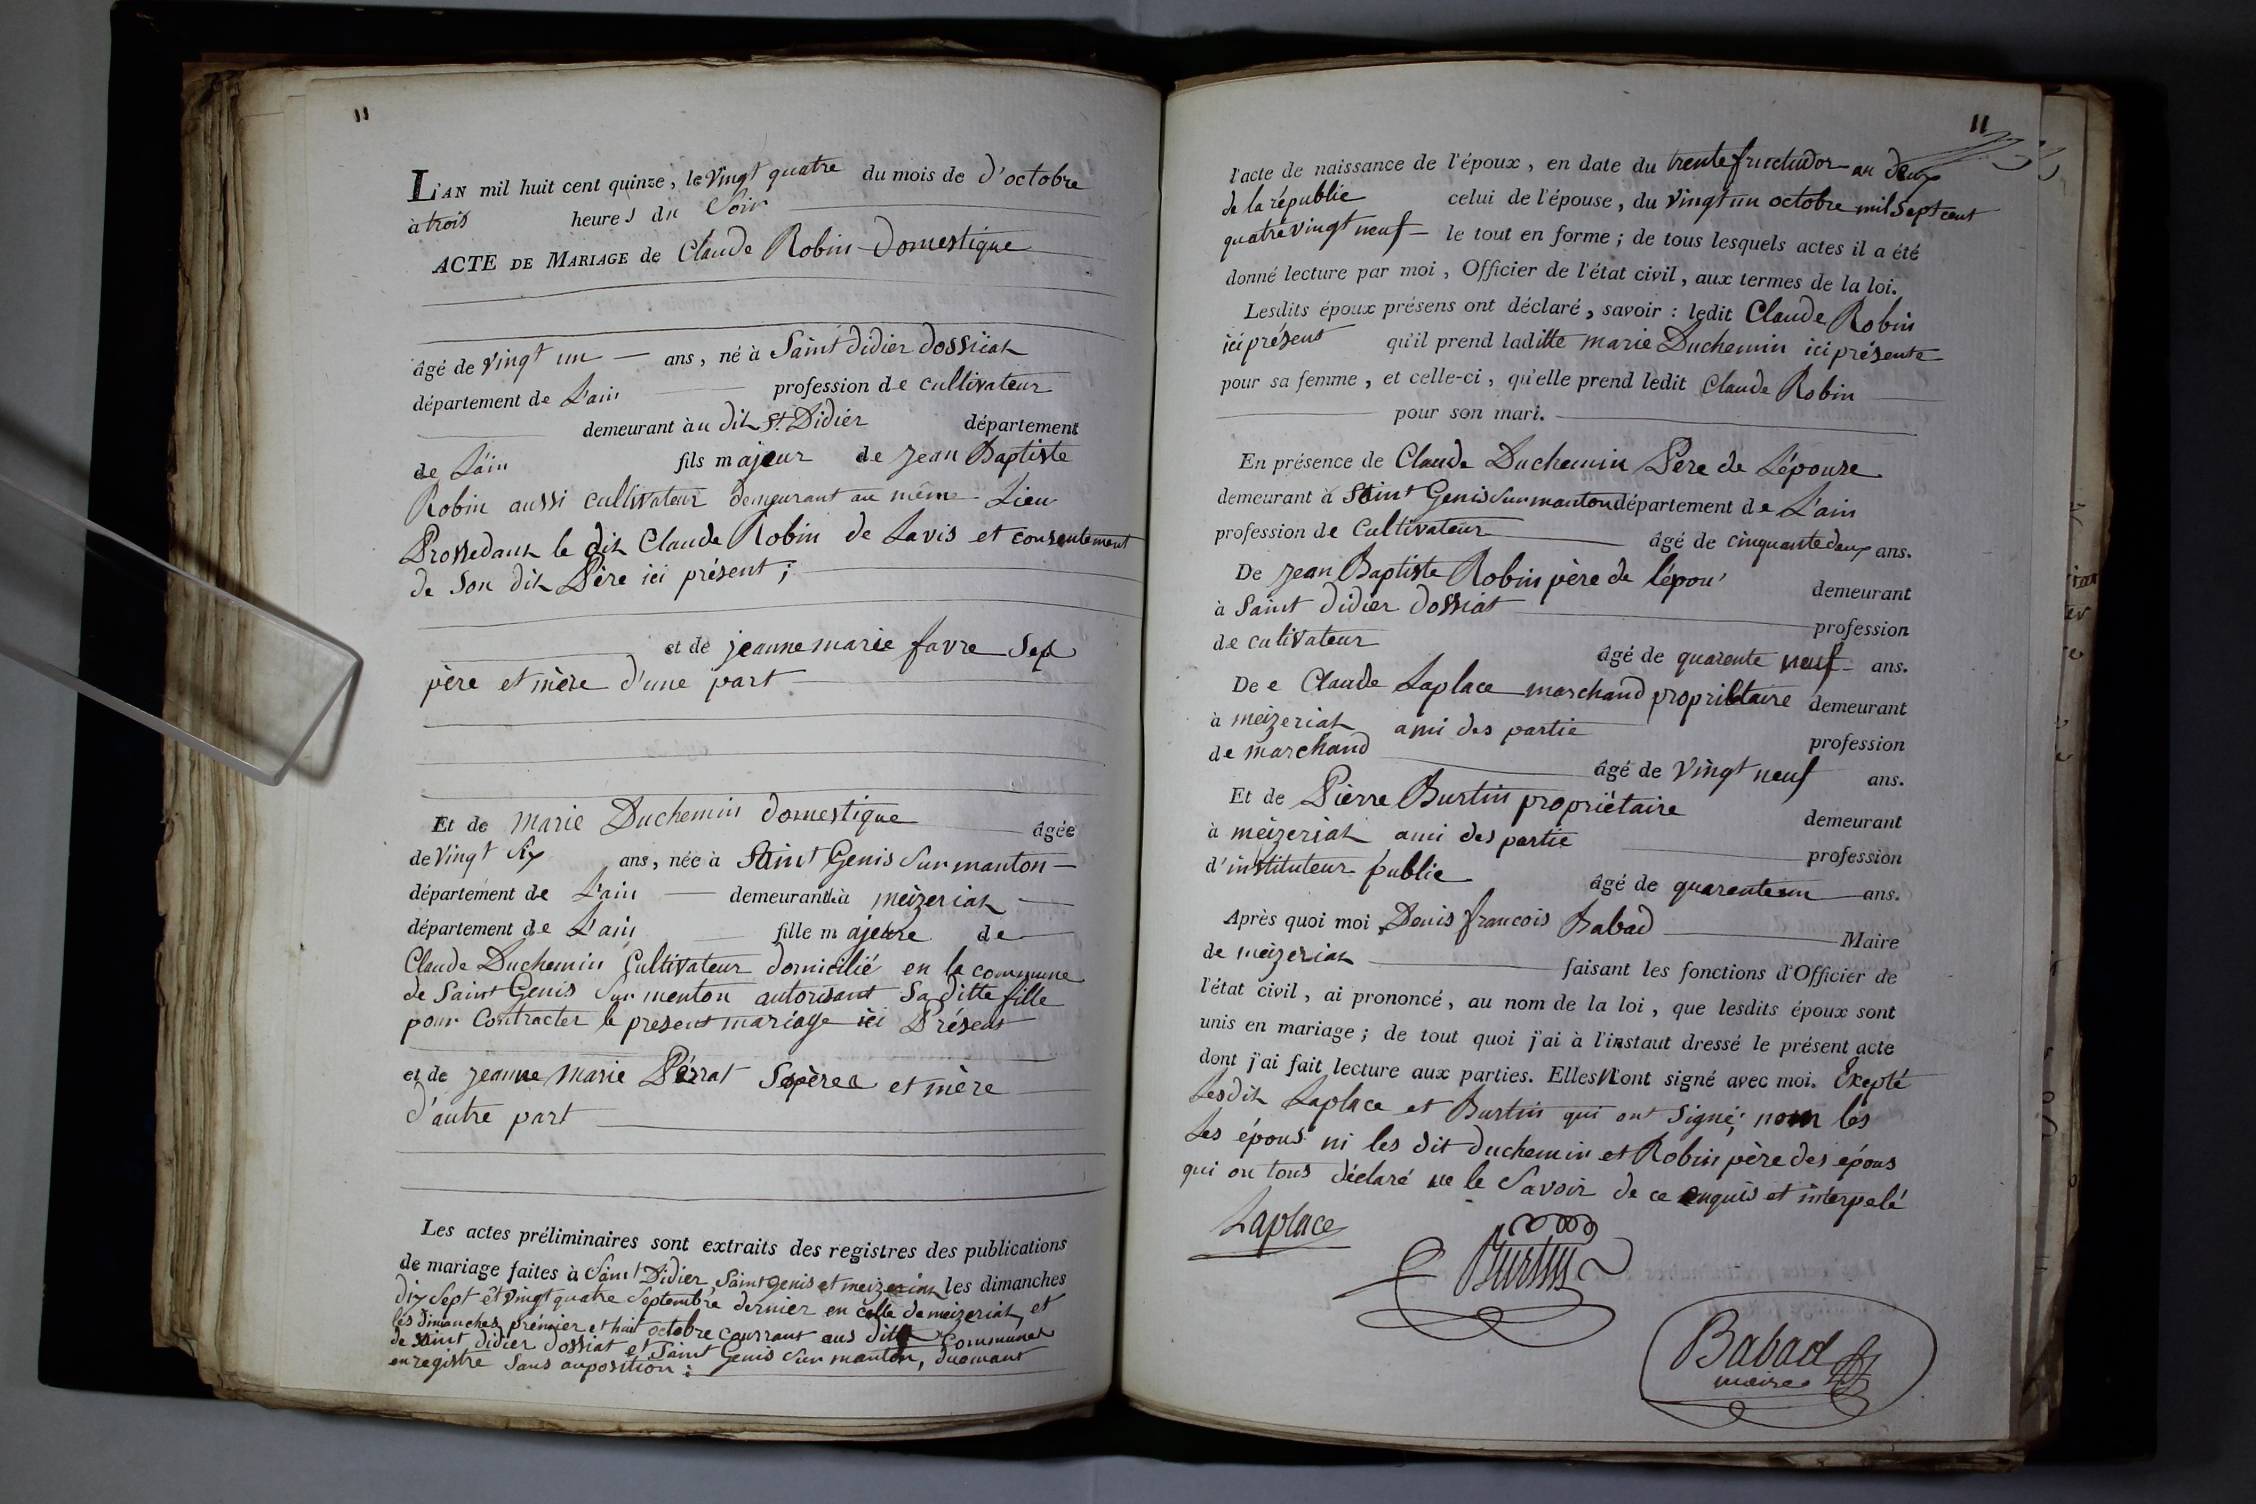 11
L'AN mil huit cent quinze, le Vingt quatre du mois de d'octobre
à trois heures du Soir
ACTE DE MARIAGE de Claude Robin Domestique
âgé de vingt un ans, né à Saint didier dossiat
département de L'ain profession de cultivateur
demeurant à u dit St. Didier département
de L'ain fils majeur de jean Baptiste
Robin aussi cultivateur demeurant au même Lieu
Prossedant le dit Claude Robin de Lavis et consentement
de Son dit Père ici présent ;
et de jeanne marie favre Ses
père et mère d'une part
Et de marie Duchemin domestique âgée
de Vingt Six ans, née à Saint Genis Sur manton
département de L'ain demeurant à meizeriat
département de L'ain fille majeure de
Claude Duchemin Cultivateur domicilié en la commune
de Saint Genis Sur menton autorisant Saditte fille
pour Contracter le present mariage ici Présent
et de jeanne Marie Perrat Sepère et mère
d'autre part
Les actes préliminaires sont extraits des registres des publications
de mariage faites à Saint Didier, Saint genis et meizeriat les dimanches
dix Sept et vingt quatre Septembre dernier en celle de meizeriat, et
les dimanches prémier et huit octobre courrant aus dites Communes
de Saint didier dossiat et Saint Genis Sur manton, duemant
enregistre Sans auposition :
11
l'acte de naissance de l'époux, en date du trente fructidor an deux
de la républie celui de l'épouse, du vingt un octobre mil Sept cent
quatre vingt neuf le tout en forme ; de tous lesquels actes il a été
donné lecture par moi, Officier de l'état civil, aux termes de la loi.
Lesdits époux présens ont déclaré, savoir : ledit Claude Robin
ici présent qu'il prend laditte marie Duchemin ici présente
pour sa femme, et celle-ci, qu'elle prend ledit Claude Robin
pour son mari.
En présence de Claude Duchemin Père de Lépouse
demeurant à Saint Genis Sur manton département de L'ain
profession de Cultivateur âgé de cinquante deux ans.
De jean Baptiste Robin père de lépou' demeurant
à Saint didier dossiat profession
de cultivateur âgé de quarente neuf ans.
De e Claude Laplace marchand propriètaire demeurant
à meizeriat ami des partie profession
de marchand âgé de Vingt neuf ans.
Et de Pierre Burtin propriétaire demeurant
à meizeriat ami des partie profession
d'instituteur publie âgé de quarenteun ans.
Après quoi moi Denis francois Babad Maire
de meizeriat faisant les fonctions d'Officier de
l'état civil, ai prononcé, au nom de la loi, que lesdits époux sont
unis en mariage ; de tout quoi j'ai à l'instant dressé le présent acte
dont j'ai fait lecture aux parties. Elles N'ont signé avec moi. Exepté
Lesdit Laplace et Burtin qui ont Signé, non les
Les épous ni les dit duchemin et Robin père des épous
qui on tous déclaré ne le Savoir de ce enquis et interpelé
Laplace
Burtin
Babad
maire